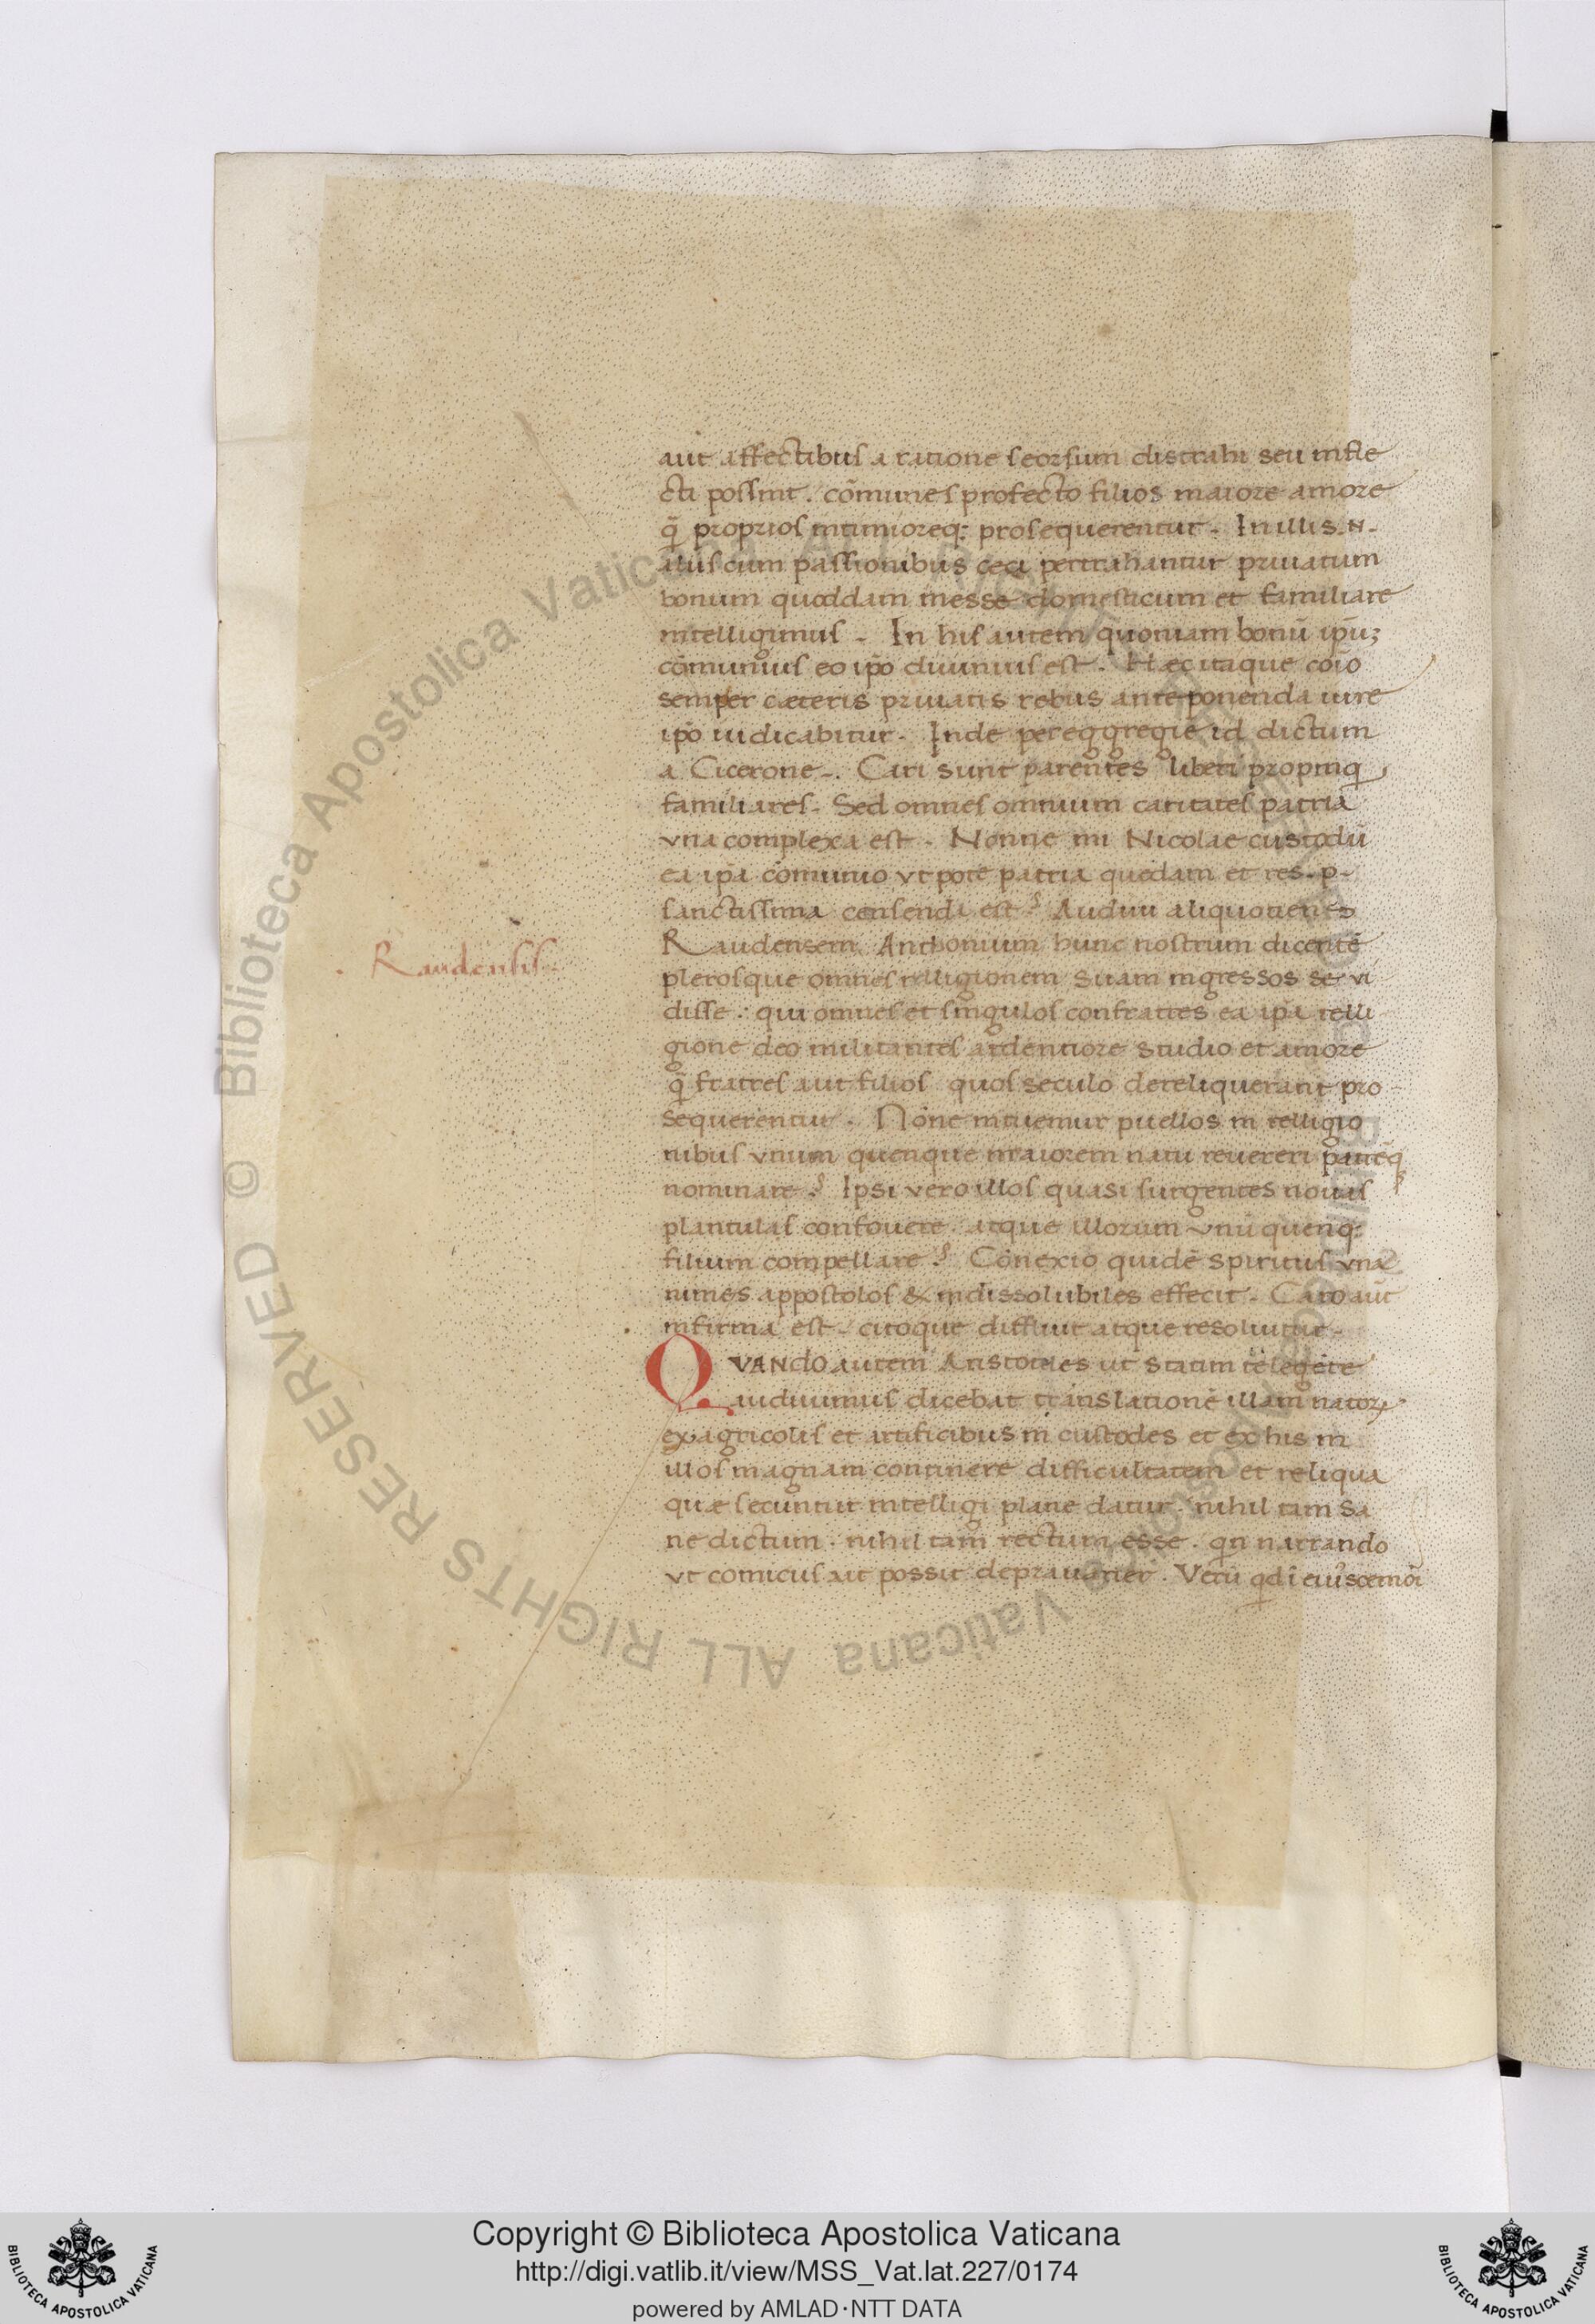 aut affectibus a ratione seorsum distrahi seu infle
cti possint. cōmunes profecto filios maiore amore
q̄ proprios intimioreq; prosequerentur. In illis .N.
alius cum passionibus ceci pertrahantur priuatum
bonum quoddam inesse domesticum et familiare
intelligimus. In his autem quoniam bonū ipū;
cōmunius eo ip̄o diuinius est. Hæc itaque cōīo
semper cæteris priuatis rebus anteponenda iure
ip̄o iudicabitur. Inde pereggregie id dictum
a Cicerone. Cari sunt parentes liberi propinq
familiares. Sed omnes omnium caritates patria
vna complexa est. Nonne mi Nicolae custodū
ea ip̄a cōmunio vt pote patria quedam et res. p.
sanctissima censenda est? Audiui aliquotienes
Raudensem Anthonium hunc nostrum dicentē
. Raudensis.
plerosque omnes relligionem suam ingressos se vi
disse: qui omnes et singulos confratres ea ip̄a relli
gione deo militantes ardentiore studio et amore
q̄ fratres aut filios quos seculo dereliquerant pro
sequerentur. Nōne intuemur puellos in relligio
nibus vnum quenque maiorem natu reuereri patrēq
nominare? Ipsi vero illos quasi surgentes nouas
plantulas confouere. atque illorum vnū quenq;
filium compellare? Cōnexio quidē spiritus vna
nimes appostolos & indissolubiles effecit. Caro aūt
infirma est. citoque diffluit atque resoluitur.
QVANDO autem Aristoteles ut statim te legēte
audiuimus dicebat translationē illam nator
ex agricolis et artificibus in custodes et ex his in
illos magnam continere difficultatem et reliqua
quæ secuntur intelligi plane datur. nihil tam sa
ne dictum. nihil tam rectum esse. qn narrando
vt comicus ait possit deprauarier. Verū
Copyright © Biblioteca Apostolica Vaticana
http://digi.vatlib.it/view/MSS_Vat.lat.227/0174
powered by AMLAD·NTT DATA
BIBLIOTECA APOSTOLICA VATICANA
BIBLIOTECA APOSTOLICA VATICANA
© Biblioteca Apostolica Vaticana ALL RIGHTS RESERVED